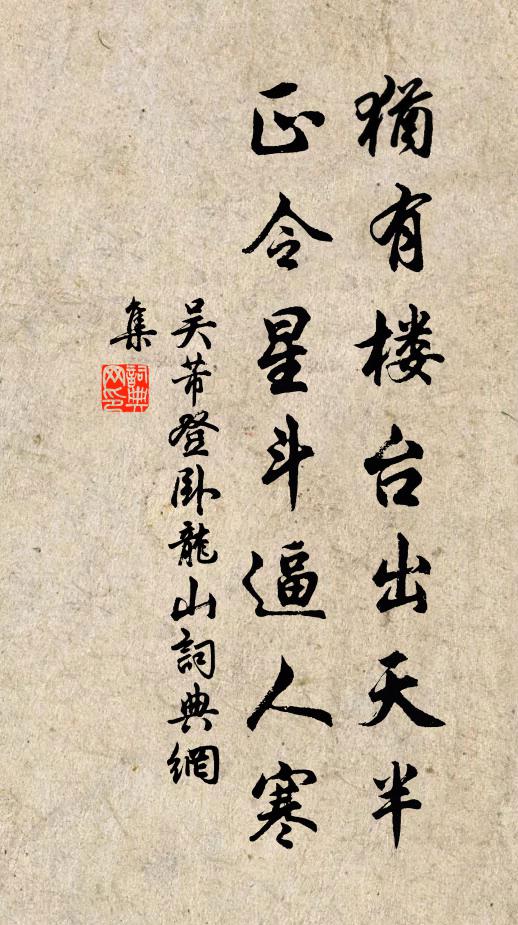 猶有楼台出天半
正令星斗逼人寒
吴芾登卧龍山詞典網
集
詞典
网印